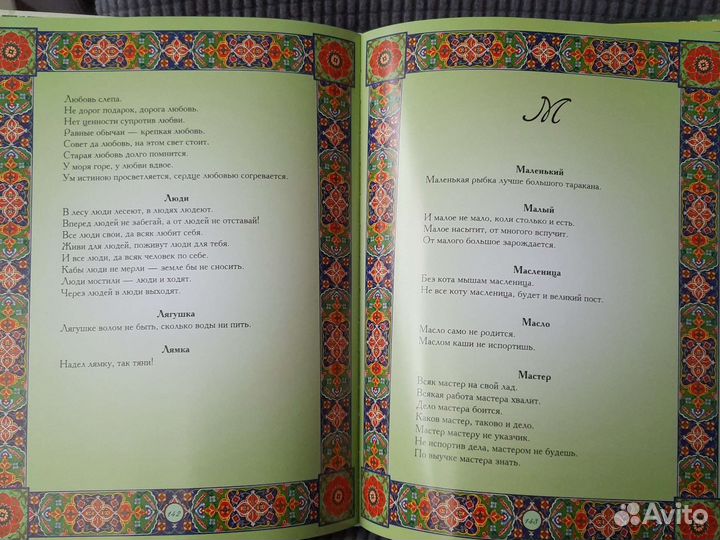 Любовь слепа.
Не дорог подарок, дорога любовь.
Нет ценности супротив любви.
Равные обычаи — крепкая любовь.
Совет да любовь, на этом свет стоит.
Старая любовь долго помнится.
У моря горе, у любви вдвое.
Ум истиною просветляется, сердце любовью согревается.
Люди
В лесу люди лесеют, в людях людеют.
Вперед людей не забегай, а от людей не отставай!
Все люди свои, да всяк любит себя.
Живи для людей, поживут люди для тебя.
И все люди, да всяк человек по себе.
Кабы люди не мерли — земле бы не сносить.
Люди мостили — люди и ходят.
Через людей в люди выходят.
Лягушка
Лягушке волом не быть, сколько воды ни пить.
Лямка
Надел лямку, так тяни!
142
М
Маленький
Маленькая рыбка лучше большого таракана.
Малый
И малое не мало, коли столько и есть.
Малое насытит, от многого вспучит.
От малого большое зарождается.
Масленица
Без кота мышам масленица.
Не все коту масленица, будет и великий пост.
Масло
Масло само не родится.
Маслом каши не испортишь.
Мастер
Всяк мастер на свой лад.
Всякая работа мастера хвалит.
Дело мастера боится.
Каков мастер, таково и дело.
Мастер мастеру не указчик.
Не испортив дела, мастером не будешь.
По выучке мастера знать.
143
Avito